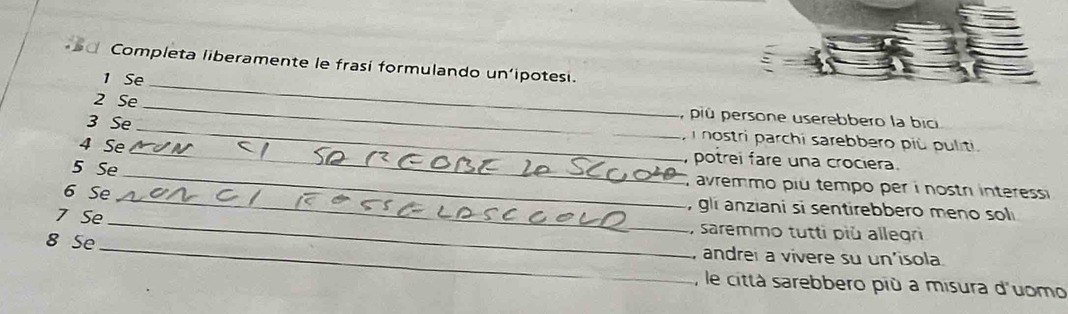 Completa liberamente le frasi formulando un'ipotesi.
1 Se , più persone userebbero la bici.
2 Se , i nostri parchi sarebbero più puliti.
3 Se , potrei fare una crociera.
4 Se NON CI SAREOBE LA SCUOLA , avremmo più tempo per i nostri interessi
5 Se , gli anziani si sentirebbero meno soli
6 Se NON CI FOSSE LASCUOLA , saremmo tutti più allegri
7 Se , andrei a vivere su un'isola.
8 Se , le città sarebbero più a misura d'uomo